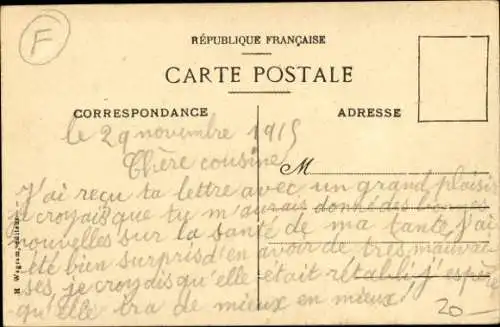 F
RÉPUBLIQUE FRANÇAISE
CARTE POSTALE
CORRESPONDANCE
ADRESSE
le 29 novembre 1915
Chère cousine
M
J'ai reçu ta lettre avec un grand plaisir
je croyais que tu m'aurais donné des bonnes
nouvelles sur la santé de ma tante, j'ai
été bien surpris d'en avoir de très mauvai
ses, je croyais qu'elle était rétabli j'espère
qu'elle ira de mieux en mieux,
20-